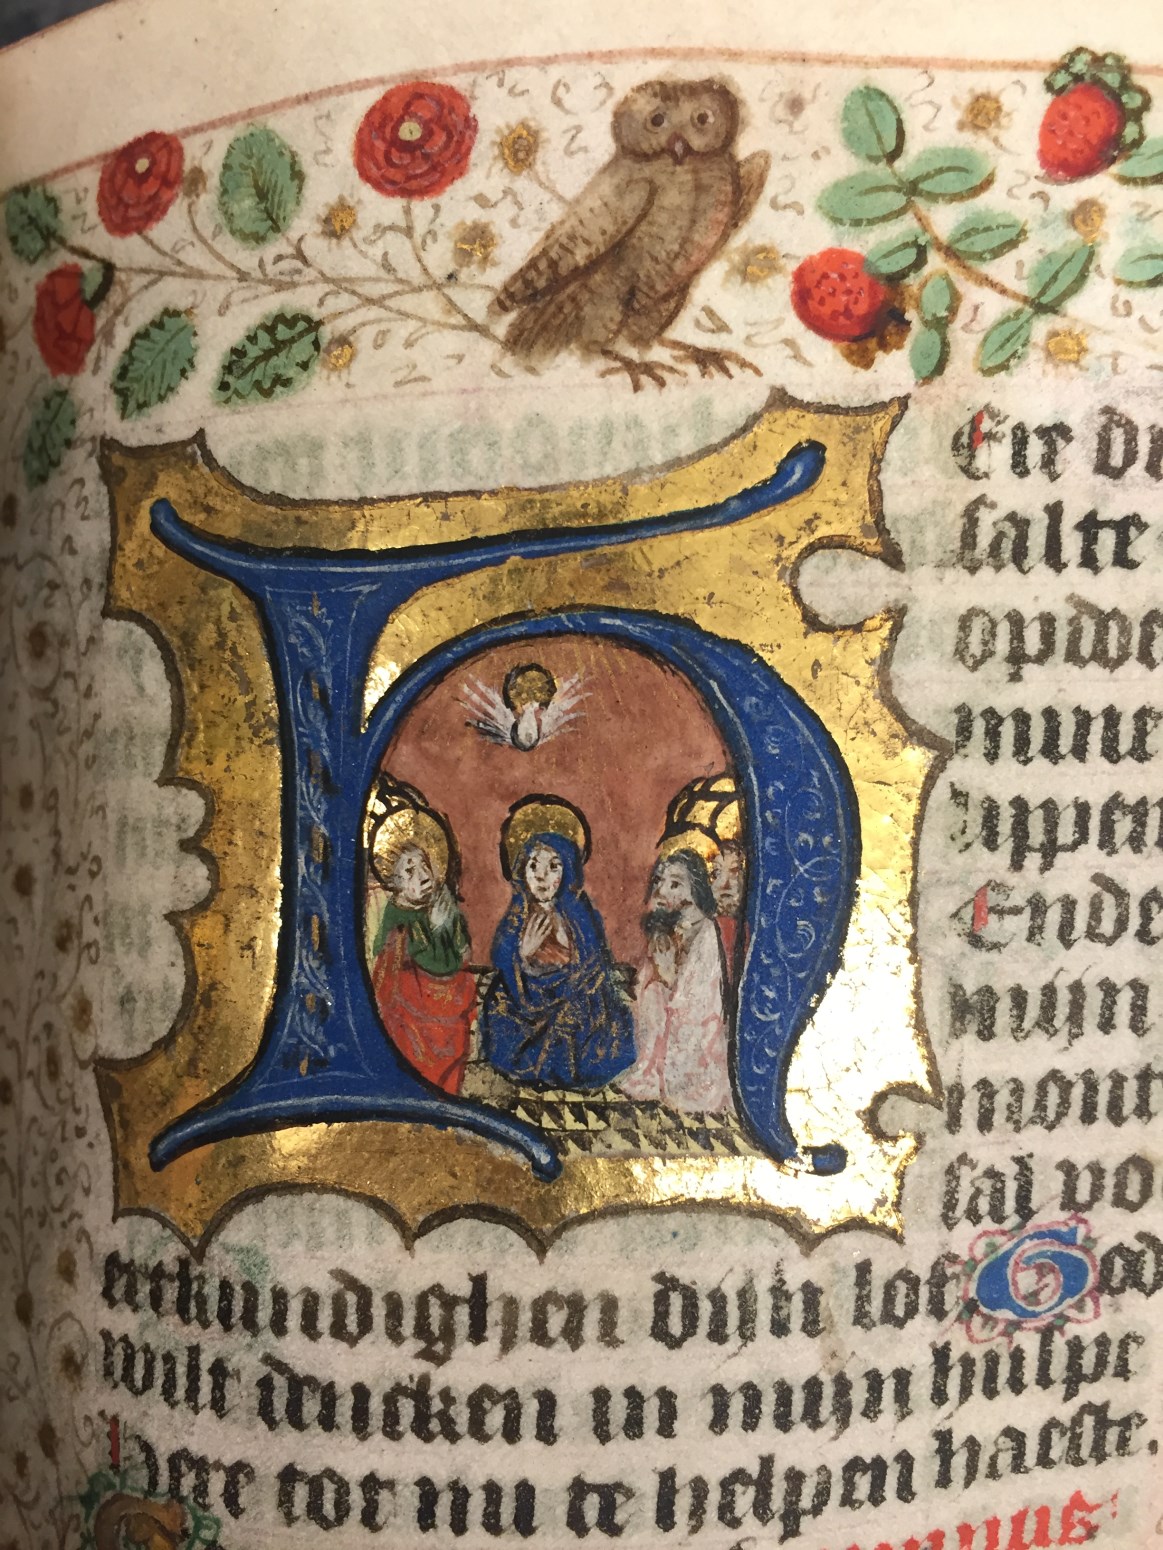 HEre du
salte
opdoe
mine
lippen
Ende
mijn
mont
sal vo
ertkundighen dijn lof God
wilt dencken in mijn hulpe
Here tot mi te helpen haeste.